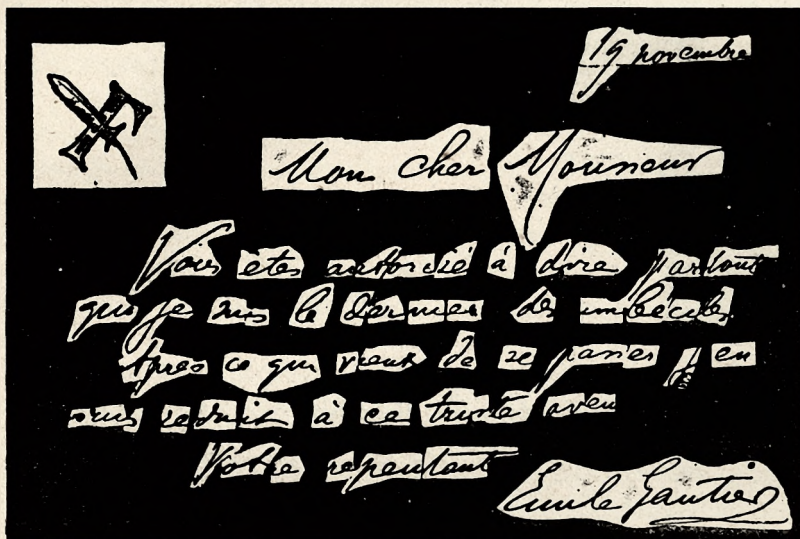 19 novembre
Mon cher Monsieur
Vous êtes autorisé à dire partout
que je suis le dernier des imbéciles.
Après ce qui vient de se passer j'en
suis réduit à ce triste aveu
Votre repentant
Emile Gautier